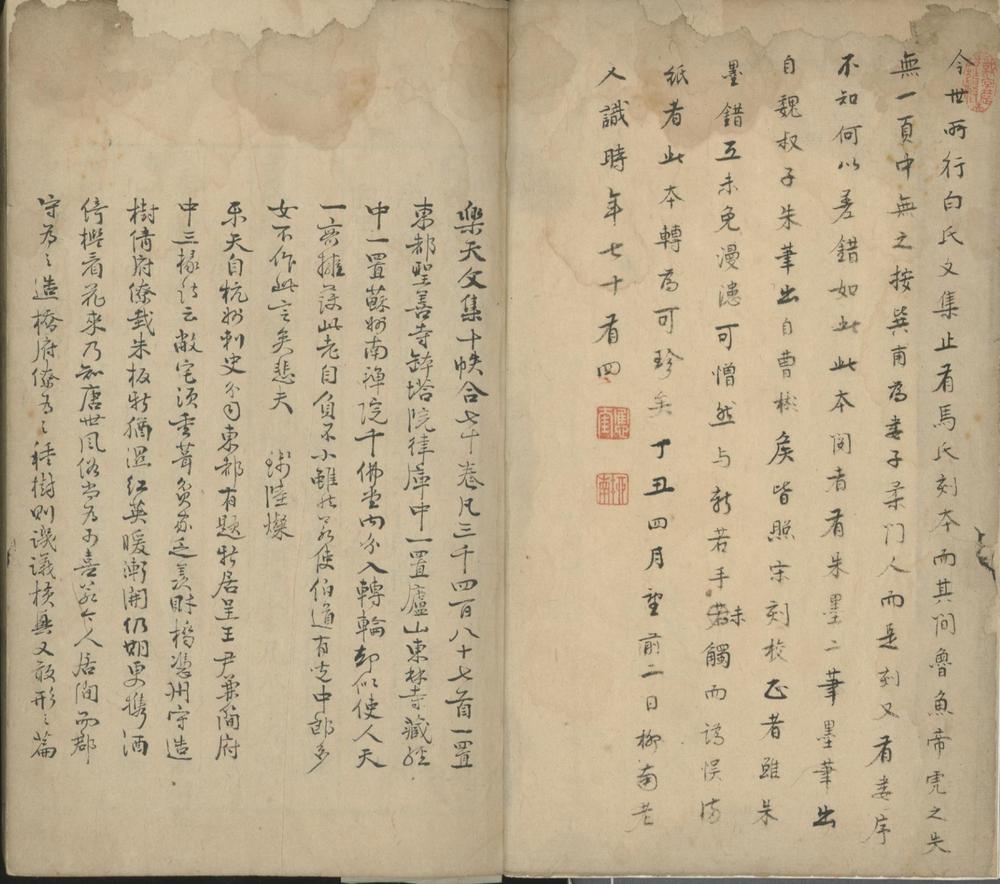 今世所行白氏文集止有馬氏刻本而其間魯魚帝虎之失
無一頁中無之按吳甫為婁子柔門人而是刻又有婁序
不知何以差錯如此此本閱者有朱墨二筆墨筆出
自魏叔子朱筆出自曹彬侯皆照宋刻校正者雖朱
墨錯互未免漫漶可憎然与新若手未觸而譌悮滿
紙者此本轉為可珍矣丁丑四月望前二日柳南老
人識時年七十有四
樂天文集十帙合七十卷凡三千四百八十七首一置
東都聖善寺鉢塔院律庫中一置廬山東林寺藏經
中一置蘇州南禪院千佛堂內分入轉輪却似使人天
一齊擁護此老自負不小雖然若使伯道有兒中郎多
女不作此言矣悲夫 陸燦
樂天自杭州刺史分司東都有題新居呈王尹兼簡府
中三掾詩云敝宅須重葺貧家乏羨財橋憑川守造
樹倩府僚栽朱板新猶濕紅英暖漸開仍期更攜酒
倚檻看花來乃知唐世風俗尚為可喜若今人居閒而郡
守為之造橋府僚為之種樹則譏議橫興又敢形之篇